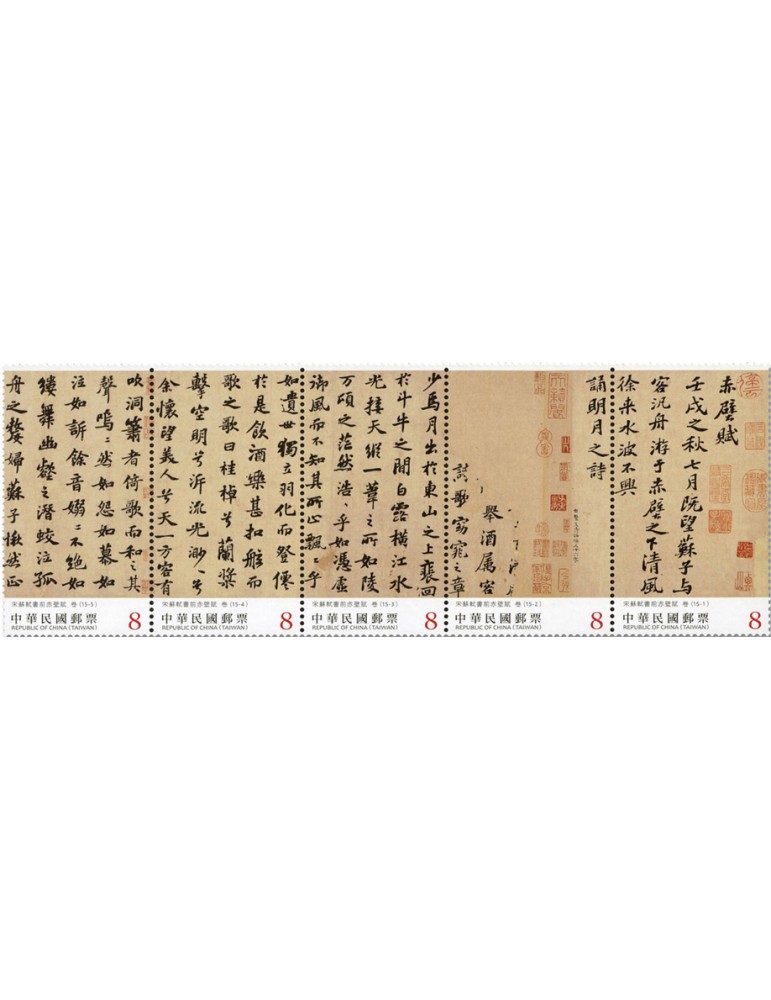 赤壁賦
壬戌之秋七月既望蘇子与
客汎舟游于赤壁之下清風
徐来水波不興
誦明月之詩
舉酒属客
歌窈窕之章
少焉月出於東山之上裵回
於斗牛之間白露橫江水
光接天縱一葦之所如陵
万頃之茫然浩〻乎如馮虛
御風而不知其所止飄〻乎
如遺世獨立羽化而登僊
於是飲酒樂甚扣舷而
歌之歌曰桂棹兮蘭槳
擊空明兮泝流光渺〻兮
余懷望美人兮天一方客有
吹洞簫者倚歌而和之其
聲嗚〻然如怨如慕如
泣如訴餘音嫋〻不絕如
縷舞幽壑之潛蛟泣孤
舟之嫠婦蘇子愀然正
宋蘇軾書前赤壁賦 卷 (15-5)
中華民國郵票 8
REPUBLIC OF CHINA (TAIWAN)
宋蘇軾書前赤壁賦 卷 (15-4)
中華民國郵票 8
REPUBLIC OF CHINA (TAIWAN)
宋蘇軾書前赤壁賦 卷 (15-3)
中華民國郵票 8
REPUBLIC OF CHINA (TAIWAN)
宋蘇軾書前赤壁賦 卷 (15-2)
中華民國郵票 8
REPUBLIC OF CHINA (TAIWAN)
宋蘇軾書前赤壁賦 卷 (15-1)
中華民國郵票 8
REPUBLIC OF CHINA (TAIWAN)